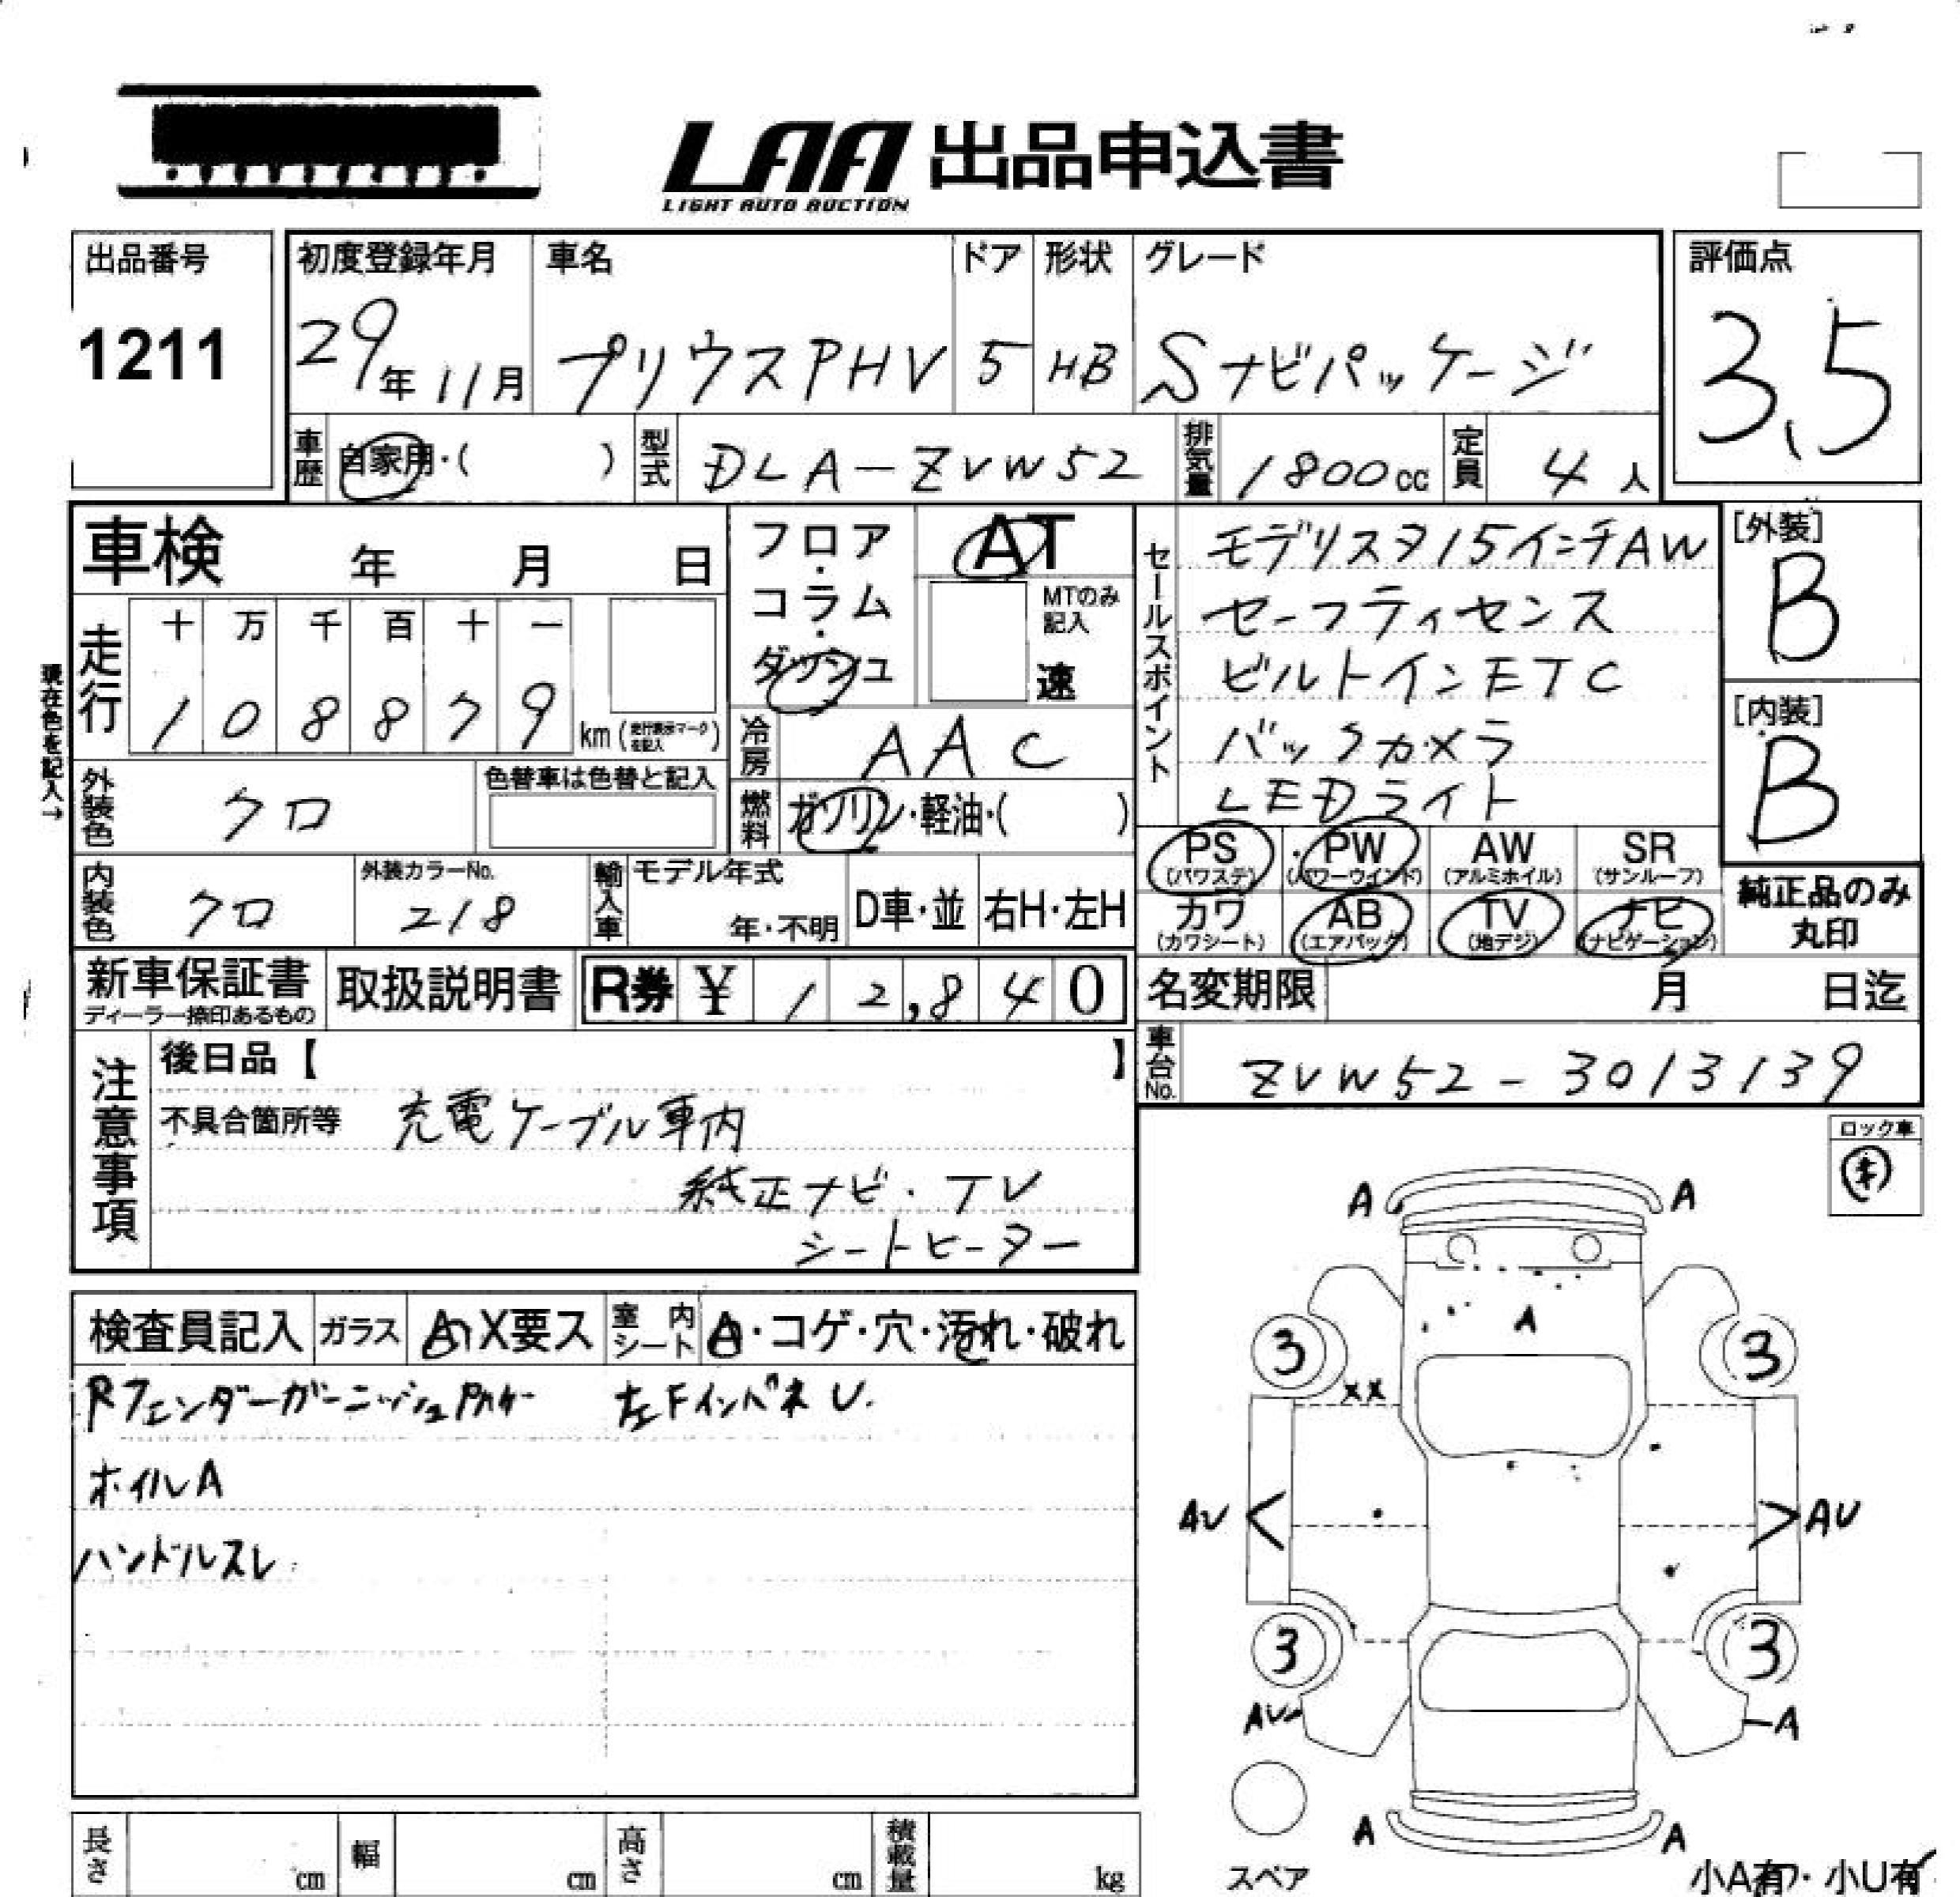 LAA 出品申込書
LIGHT AUTO AUCTION
出品番号
1211
初度登録年月
29年11月
車名
プリウスPHV
ドア
5
形状
HB
グレード
Sナビパッケージ
評価点
3.5
車歴 自家用・( )
型式 DLA-ZVW52
排気量 1800cc
定員 4人
車検 年 月 日
走行
十 万 千 百 十 一
1 0 8 8 7 9 km (走行表示マークを記入)
現在色を記入→
外装色 クロ
色替車は色替と記入
内装色 クロ
外装カラーNo.
218
輸入車
モデル年式
年・不明
D車・並
右H・左H
フロア・コラム・ダッシュ
AT
MTのみ記入
速
冷房 AAC
燃料 ガソリン・軽油・( )
セールスポイント
モデリスタ15インチAW
セーフティセンス
ビルトインETC
バックカメラ
LEDライト
[外装]
B
[内装]
B
PS (パワステ)
PW (パワーウインド)
AW (アルミホイル)
SR (サンルーフ)
カワ (カワシート)
AB (エアバック)
TV (地デジ)
ナビ (ナビゲーション)
純正品のみ
丸印
新車保証書
ディーラー捺印あるもの
取扱説明書
R券 ¥ 12,840
名変期限 月 日迄
車台No. ZVW52-3013139
注意事項
後日品【 】
不具合箇所等 充電ケーブル車内
純正ナビ・TV
シートヒーター
ロック車
キ
検査員記入
ガラス
A X要ス
室内シート
A・コゲ・穴・汚れ・破れ
Rフェンダーガーニッシュ 左FインパネU.
ホイルA
ハンドルスレ
A A
A
3 3
XX
AU AU
3 3
AU A
A A
スペア
小A有・小U有
長さ cm
幅 cm
高さ cm
積載量 kg